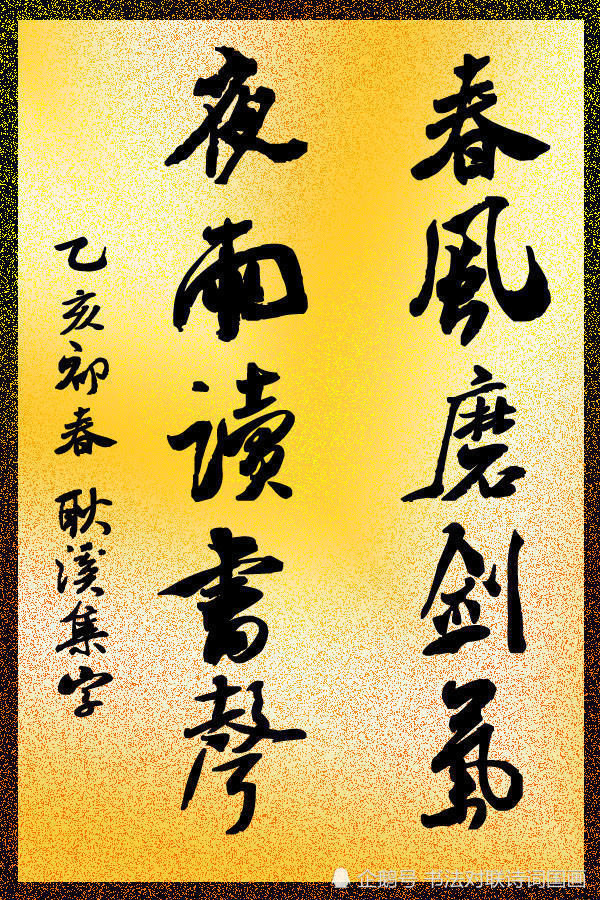 春風磨剑氣
夜雨讀書聲
乙亥初春 耿溪集字
企鹅号 书法对联诗词国画